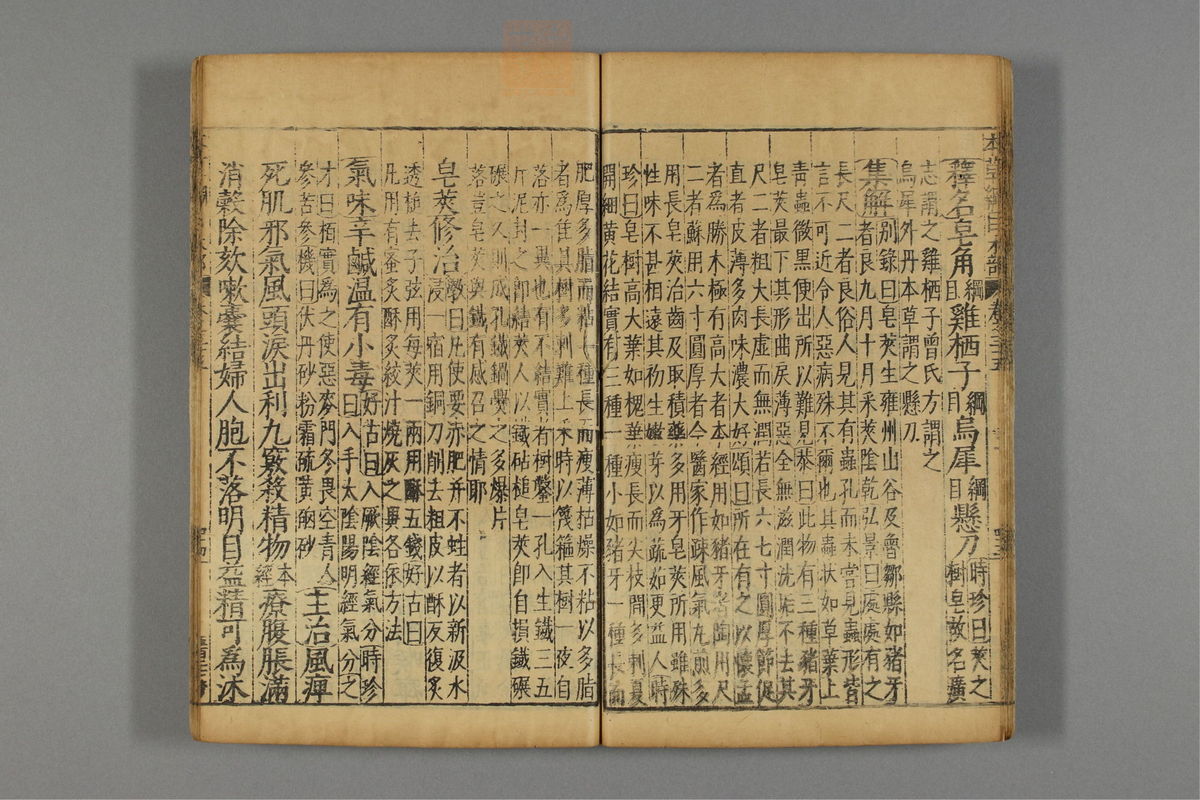 本草綱目木部 卷之三十五
釋名皂角綱目雞栖子綱目烏犀綱目懸刀時珍曰莢之樹皂故名廣
志謂之雞栖子曾氏方謂之
烏犀外丹本草謂之懸刀
集解別錄曰皂莢生雍州山谷及魯鄒縣如豬牙
者良九月十月采莢陰乾弘景曰處處有之
長尺二者良俗人見其有蟲孔而未嘗見蟲形皆
言不可近令人惡病殊不爾也其蟲狀如草葉上
青蟲微黑便出所以難見恭曰此物有三種豬牙
皂莢最下其形曲戾薄惡全無滋潤洗垢不去其
尺二者粗大長虛而無潤若長六七寸圓厚節促
直者皮薄多肉味濃大好頌曰所在有之以懷孟
者為勝木極有高大者本經用如豬牙者陶用尺
二者蘇用六寸圓厚者今醫家作疎風氣丸煎多
用長皂莢治齒及取積藥多用牙皂莢所用雖殊
性味不甚相遠其初生嫩芽以為蔬茹更益人時
珍曰皂樹高大葉如槐葉瘦長而尖枝間多刺夏
開細黃花結實有三種一種小如豬牙一種長而
肥厚多脂而粘一種長而瘦薄枯燥不粘以多脂
者為佳其樹多刺難上采時以篾箍其樹一夜自
落亦一異也有不結實者樹鑿一孔入生鐵三五
斤泥封之即結莢人以鐵砧槌皂莢即自損鐵碾
碾之久則成孔鐵鍋爨之多爆片
落豈皂莢與鐵有感召之情耶
皂莢修治斆曰凡使要赤肥并不蛀者以新汲水
浸一宿用銅刀削去粗皮以酥反復炙
透槌去子弦每莢一兩用酥五錢好古曰
凡用有蜜炙酥炙絞汁燒灰之異各依方法
氣味辛鹹溫有小毒好古曰入厥陰經氣分時珍
曰入手太陰陽明經氣分之
才曰栢實為之使惡麥門冬畏空青人
參苦參機曰伏丹砂粉霜硫黃硇砂
主治風痺
死肌邪氣風頭淚出利九竅殺精物本經療腹脹滿
消穀除欬嗽囊結婦人胞不落明目益精可為沐